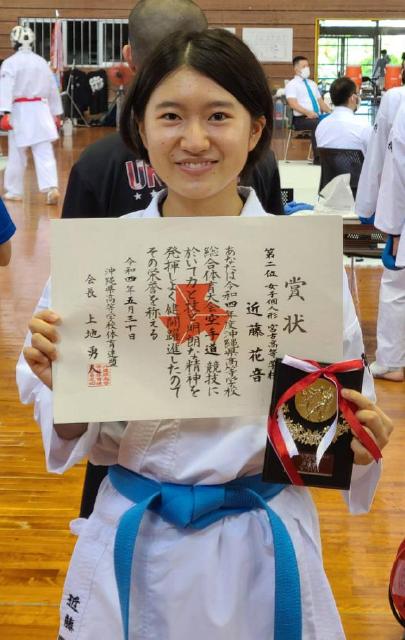 賞状
第二位 女子個人形 宮古高等学校
近藤花音
あなたは令和四年度沖縄県高等学校
総合体育大会空手道競技に
於いて力と技と明朗な精神を
発揮しよく健闘躍進したので
その栄誉を称える
令和四年五月三十日
沖縄県高等学校体育連盟
会長 上地勇人
近藤